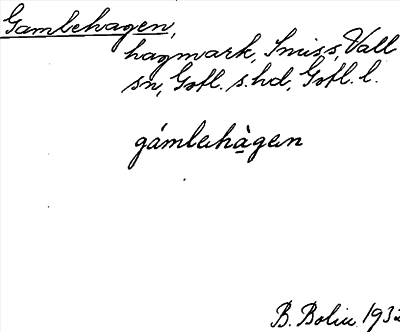 Gamlehagen,
hagmark, Smiss, Vall
sn, Gotl. s. hd, Gotl. l.
gámlahàgan
B. Bolin 1932